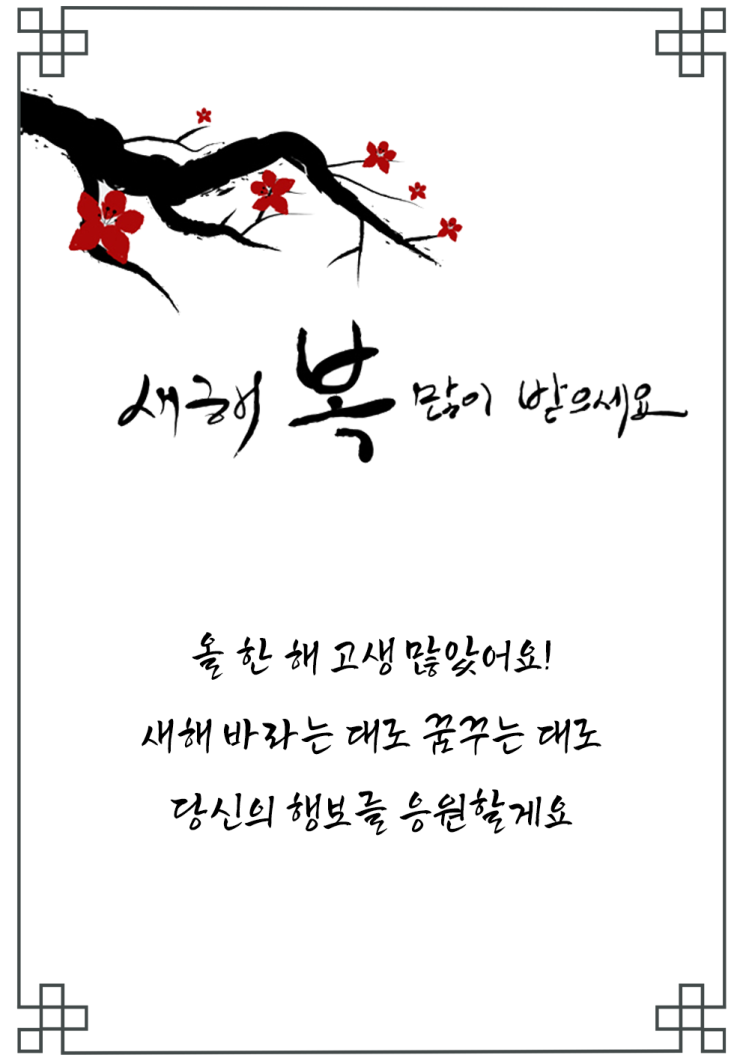 새해 복 많이 받으세요
올 한 해 고생 많았어요!
새해 바라는 대로 꿈꾸는 대로
당신의 행보를 응원할게요